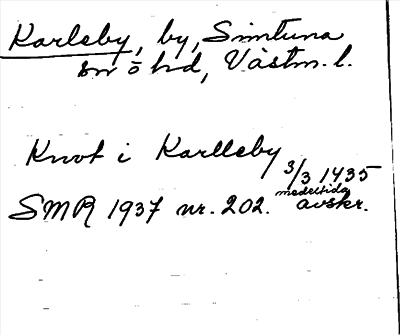 Karleby, by, Simtuna
sn o hd, Västm. l.
Knot i Karlleby 3/3 1435
SMR 1937 nr. 202. medeltida avskr.